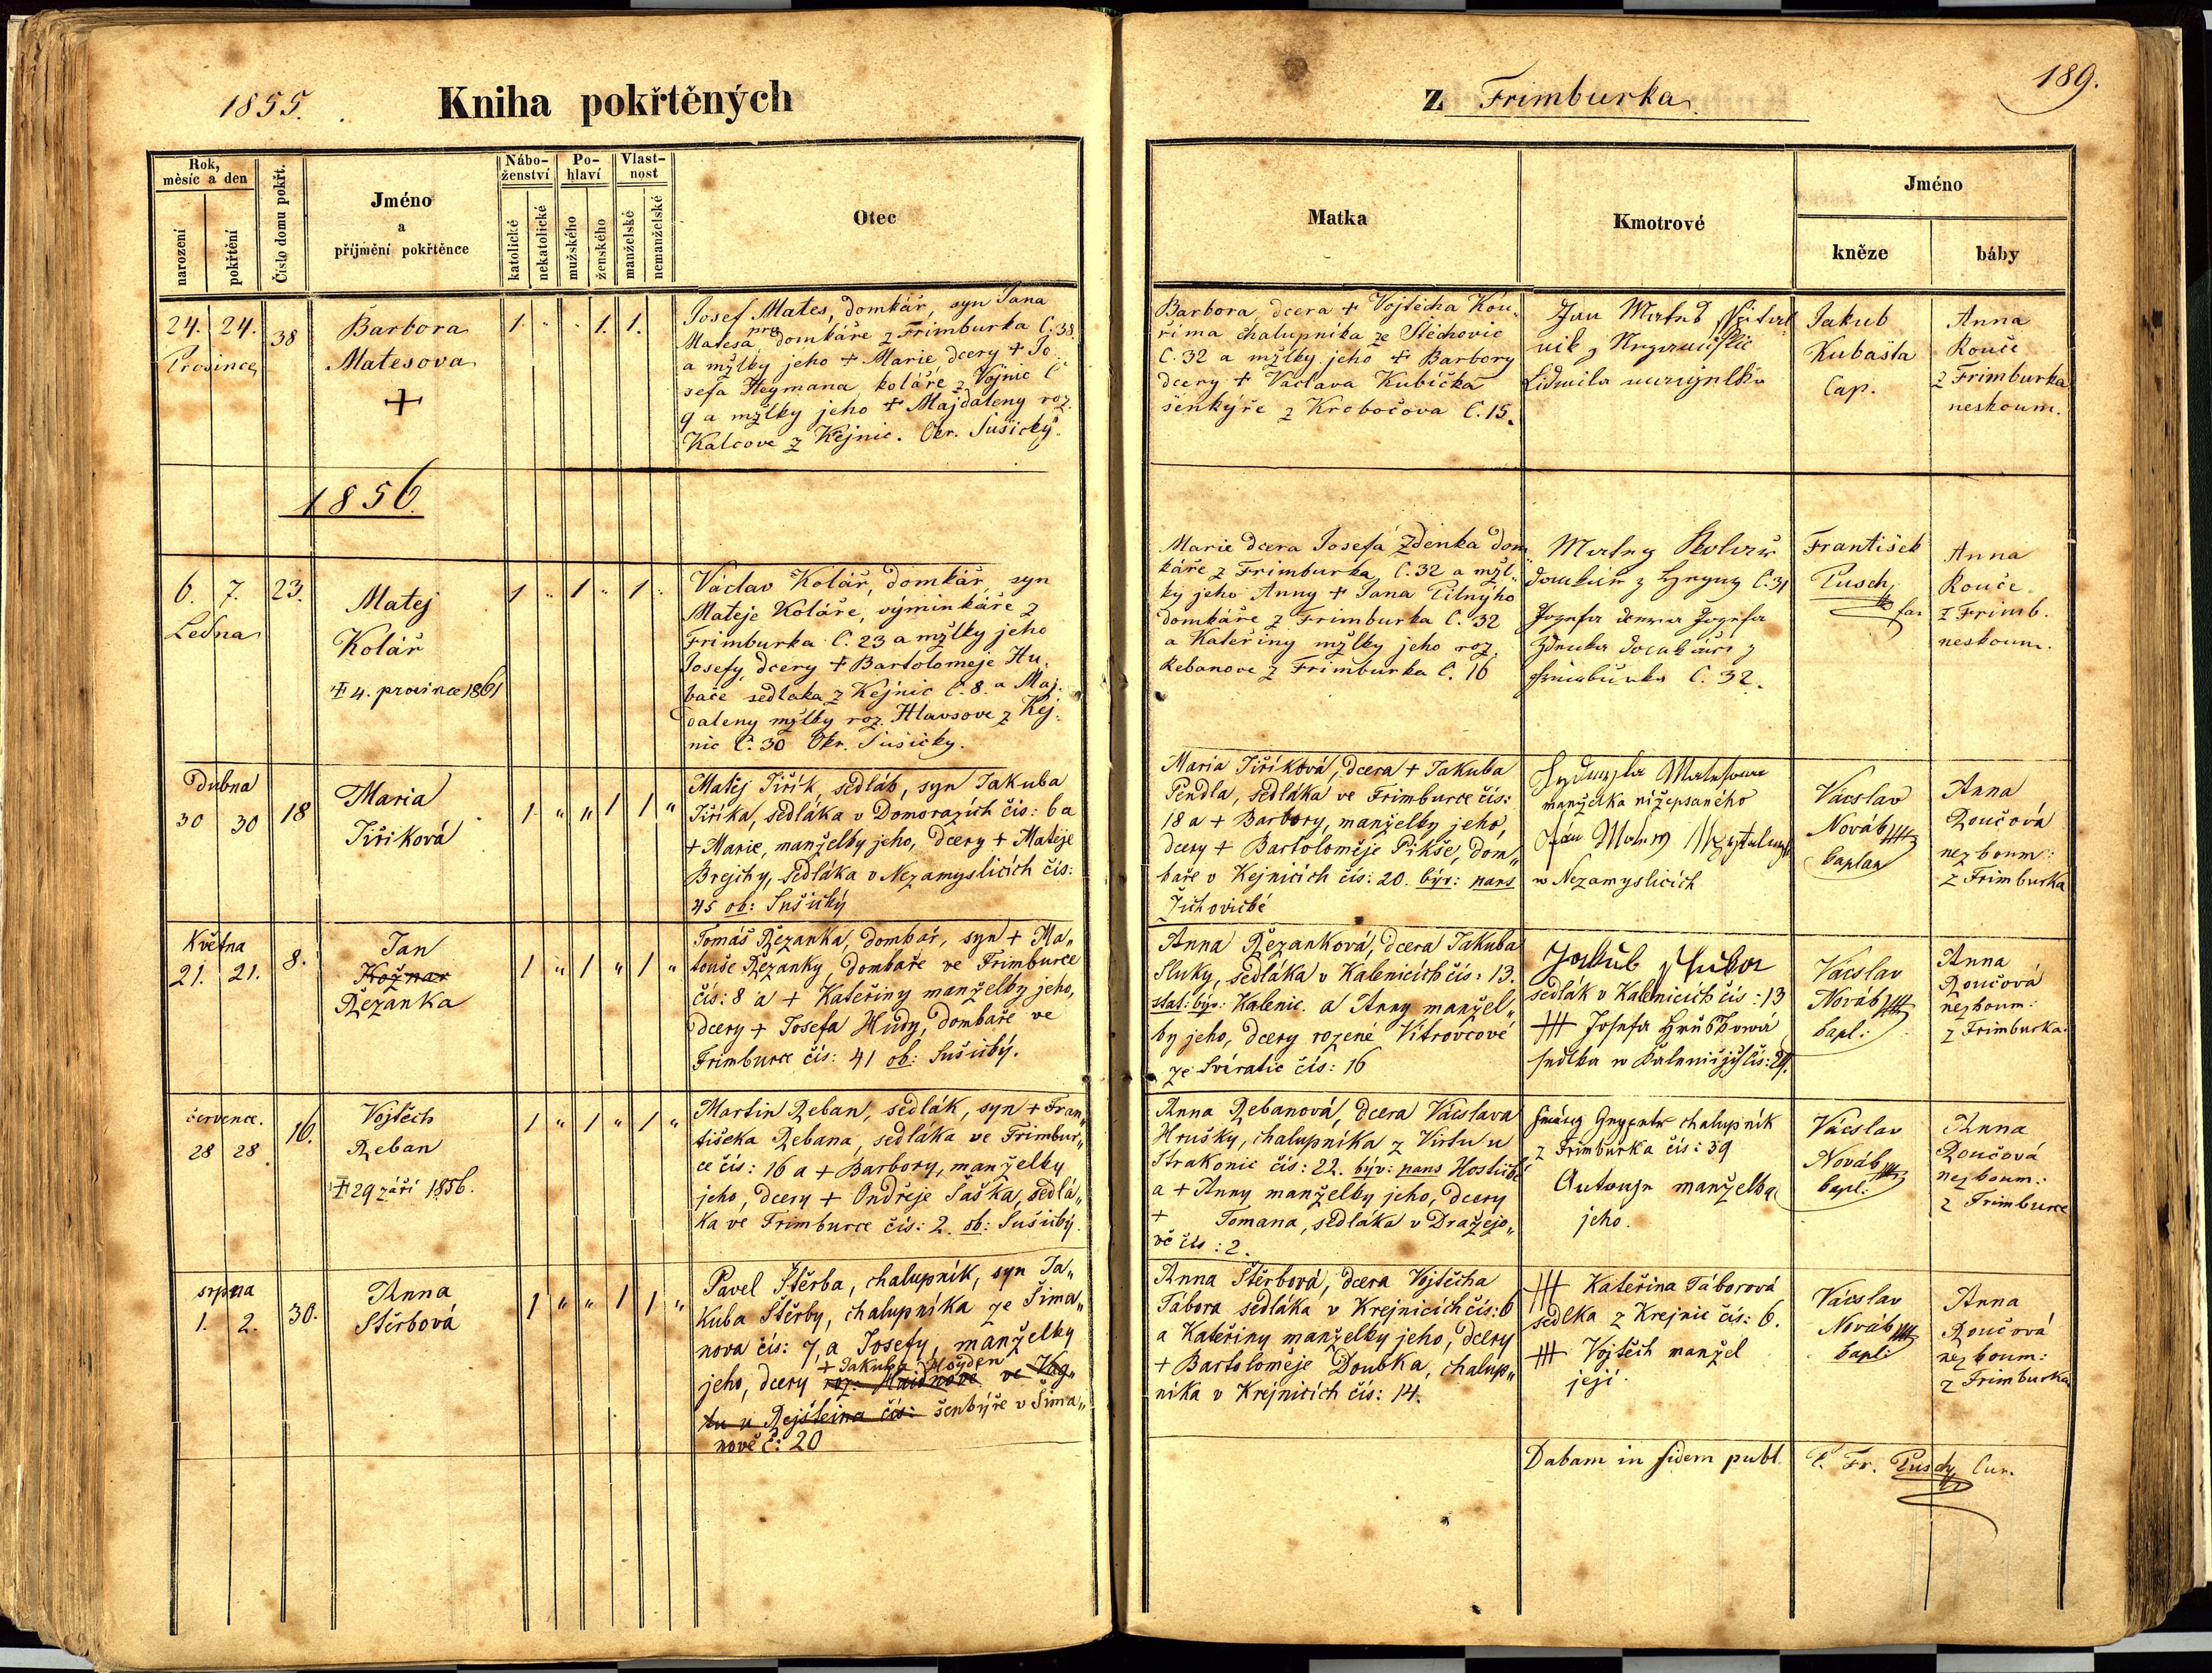 1855.
Kniha pokřtěných
z Frimburka
189.
Rok,
měsíc a den
narození
pokřtění
Číslo domu pokřt.
Jméno
a
příjmění pokřtěnce
Nábo-
ženství
katolické
nekatolické
Po-
hlaví
mužského
ženského
Vlast-
nost
manželské
nemanželské
Otec
Matka
Kmotrové
Jméno
kněze
báby
24. 24.
Prosince
38
Barbora
Matesova
+
1. " " 1. 1.
Josef Mates, domkář, syn Jana
Matesa domkáře z Frimburka Č. 38
a mžlky jeho + Marie dcery + Jo
sefa Heymana koláře z Vojnic Č
9 a mžlky jeho + Majdaleny roz.
Kalcove z Kejnic. Okr. Sušický.
Barbora dcera + Vojtěcha Kou-
říma chalupníka ze Štěchovic
Č. 32 a mžlky jeho + Barbory
dcery + Václava Kubíčka
šenkýře z Krobočova Č. 15.
Jan Mateš
Lidmila manželka
Jakub
Kubašta
Cap.
Anna
Rouče
z Frimburka
neskoum.
1856.
6. 7.
Ledna
23.
Matej
Kolář
+ 4. prosince 1861
1 " 1 " 1 "
Václav Kolář, domkář, syn
Mateje Koláře, výminkáře z
Frimburka Č. 23 a mžlky jeho
Josefy, dcery + Bartolomeje Hu-
bače sedlaka z Kejnic Č. 8. a Maj-
daleny mžlky roz. Hlavsove z Kej-
nic Č. 30 Okr. Sušicky.
Marie dcera Josefa Zdenka dom
káře z Frimburka, Č. 32 a mžl-
ky jeho Anny + Jana Pilnýho
domkáře z Frimburka Č. 32
a Kateřiny mžlky jeho roz.
Rebanove z Frimburka Č. 16
Matey Kolarž
domkář z Č. 31
Jozefa dcera Jozefa
Zdenka domkáře z
Frimburka Č. 32.
František
Pusch
far
Anna
Rouče
z Frimb.
neskoum.
Dubna
30 30
18
Maria
Jiříková
1. " " 1 1 "
Matěj Jiřík, sedlák, syn Jakuba
Jiříka, sedláka v Domorazích čís: 6 a
+ Marie, manželky jeho, dcery + Mateje
Brejchy, sedláka v Nezamyslicích čís:
45 ob: Sušický
Maria Jiříková, dcera + Jakuba
Pendla, sedláka ve Frimburce čís:
18 a + Barbory, manželky jeho,
dcery + Bartoloměje Pikše, dom„
kaře v Kejnicích čís: 20. býv: pans
Žichovické
Lydmyla Matesowa
manželka nížepsaného
Jan
w Nezamyslicích
Vácslav
Novák
kaplan
Anna
Roučová
nezkoum:
z Frimburka
Května
21. 21.
8.
Jan
Kožnar
Řezanka
1 " 1 " 1 "
Tomáš Řezanka, domkař, syn + Ma„
touše Řezanky, domkaře ve Frimburce
čís: 8 a + Kateřiny manželky jeho,
dcery + Josefa Hudy, domkaře ve
Frimburce čís: 41 ob: Sušický.
Anna Řezanková, dcera Jakuba
Sluky, sedláka v Kalenicích čís: 13.
stat: býv: Kalenic. a Anny manžel„
ky jeho, dcery rozené Vitrovcové
ze Svíratic čís: 16
Jakub Sluka
sedlák v Kalenicích čís: 13
+++ Josefa
sedlka w Kalenicých čís: 24.
Vácslav
Novák
kapl:
Anna
Roučová
nezkoum:
z Frimburka.
července.
28 28.
16.
Vojtěch
Řeban
+ 29 září 1856.
1 " 1 " 1 "
Martin Řeban, sedlák, syn + Fran„
tišeka Řebana, sedláka ve Frimbur„
ce čís: 16 a + Barbory, manželky
jeho, dcery + Ondřeje Šaška, sedlá„
ka ve Frimburce čís: 2. ob: Sušický.
Anna Řebanová, dcera Vácslava
Hrušky, chalupníka z Virtu u
Strakonic čís: 22. býv: pans Hoštické
a + Anny manželky jeho, dcery
+ Tomana, sedláka v Dražejo„
vě čís: 2.
chalupník
z Frimburka čís: 39
manželka
jeho.
Vácslav
Novák
kapl:
Anna
Roučová
nezkoum:
z Frimburce
srpna
1. 2.
30.
Anna
Štěrbová
1 " " 1 1 "
Pavel Štěrba, chalupník, syn Ja„
kuba Štěrby, chalupníka ze Šima„
nova čís: 7, a Josefy, manželky
+ Jakuba Hoyden
jeho, dcery roz: Haidnove ve Vag„
tu u Rejšteina čís: šenkýře v Šima„
nově č: 20
Anna Štěrbová, dcera Vojtěcha
Tábora sedláka v Krejnicích čís: 6
a Kateřiny manželky jeho, dcery
+ Bartoloměje Doubka, chalup„
níka v Krejnicích čís: 14.
+++ Kateřina Táborová
sedlka z Krejnic čís: 6.
+++ Vojtěch manžel
její.
Vácslav
Novák
kapl:
Anna
Roučová
nezkoum:
z Frimburka
Dabam in fidem publ.
P. Fr. Pusch, Cur.